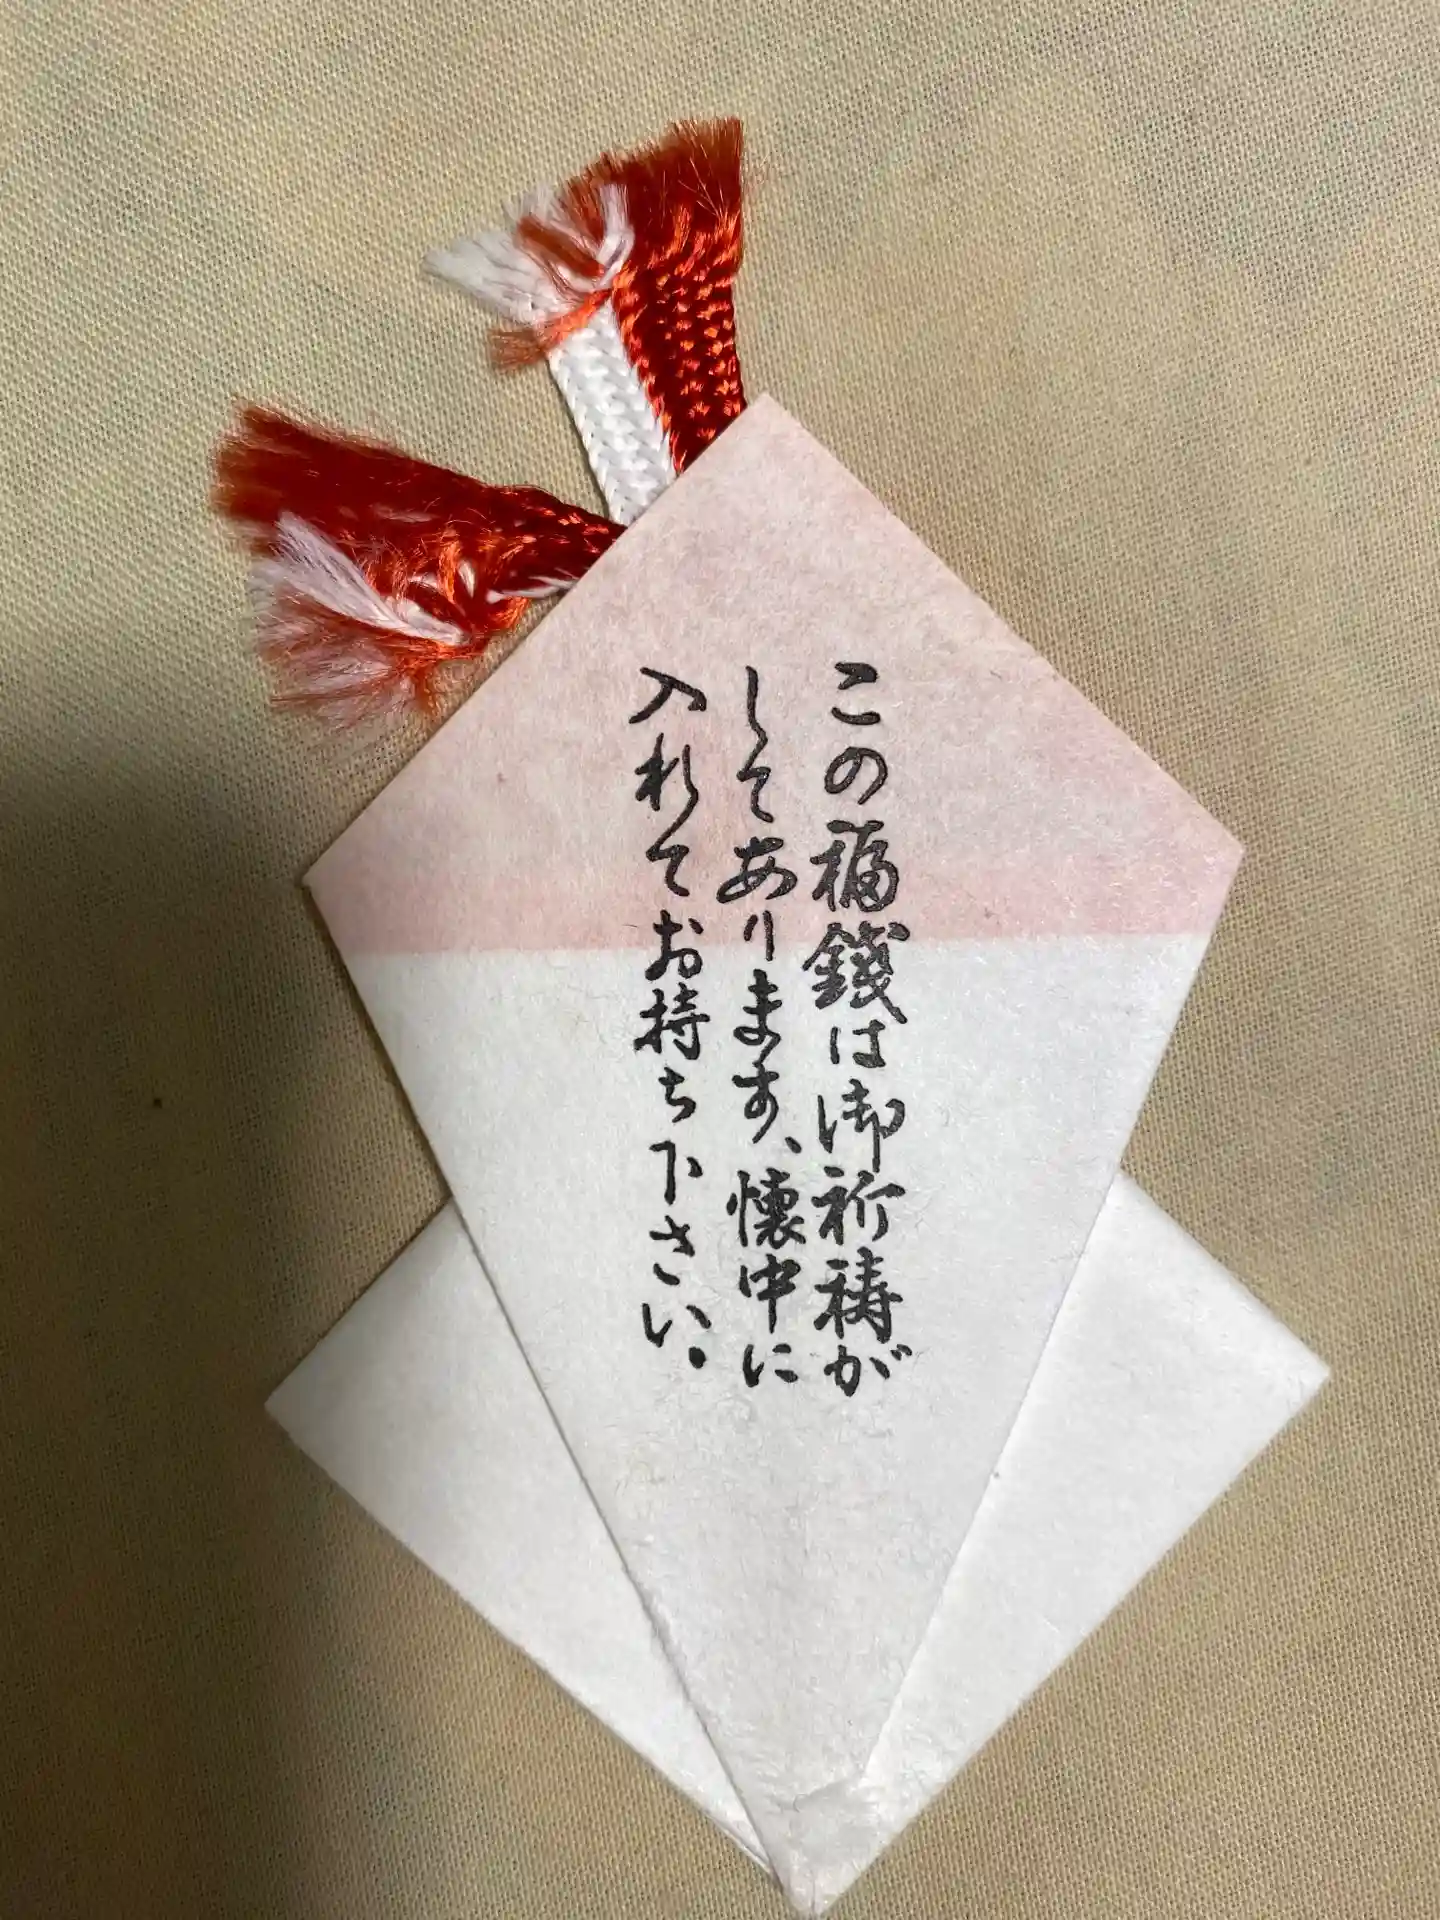 この福錢は御祈祷が
してあります、懐中に
入れてお持ち下さい。